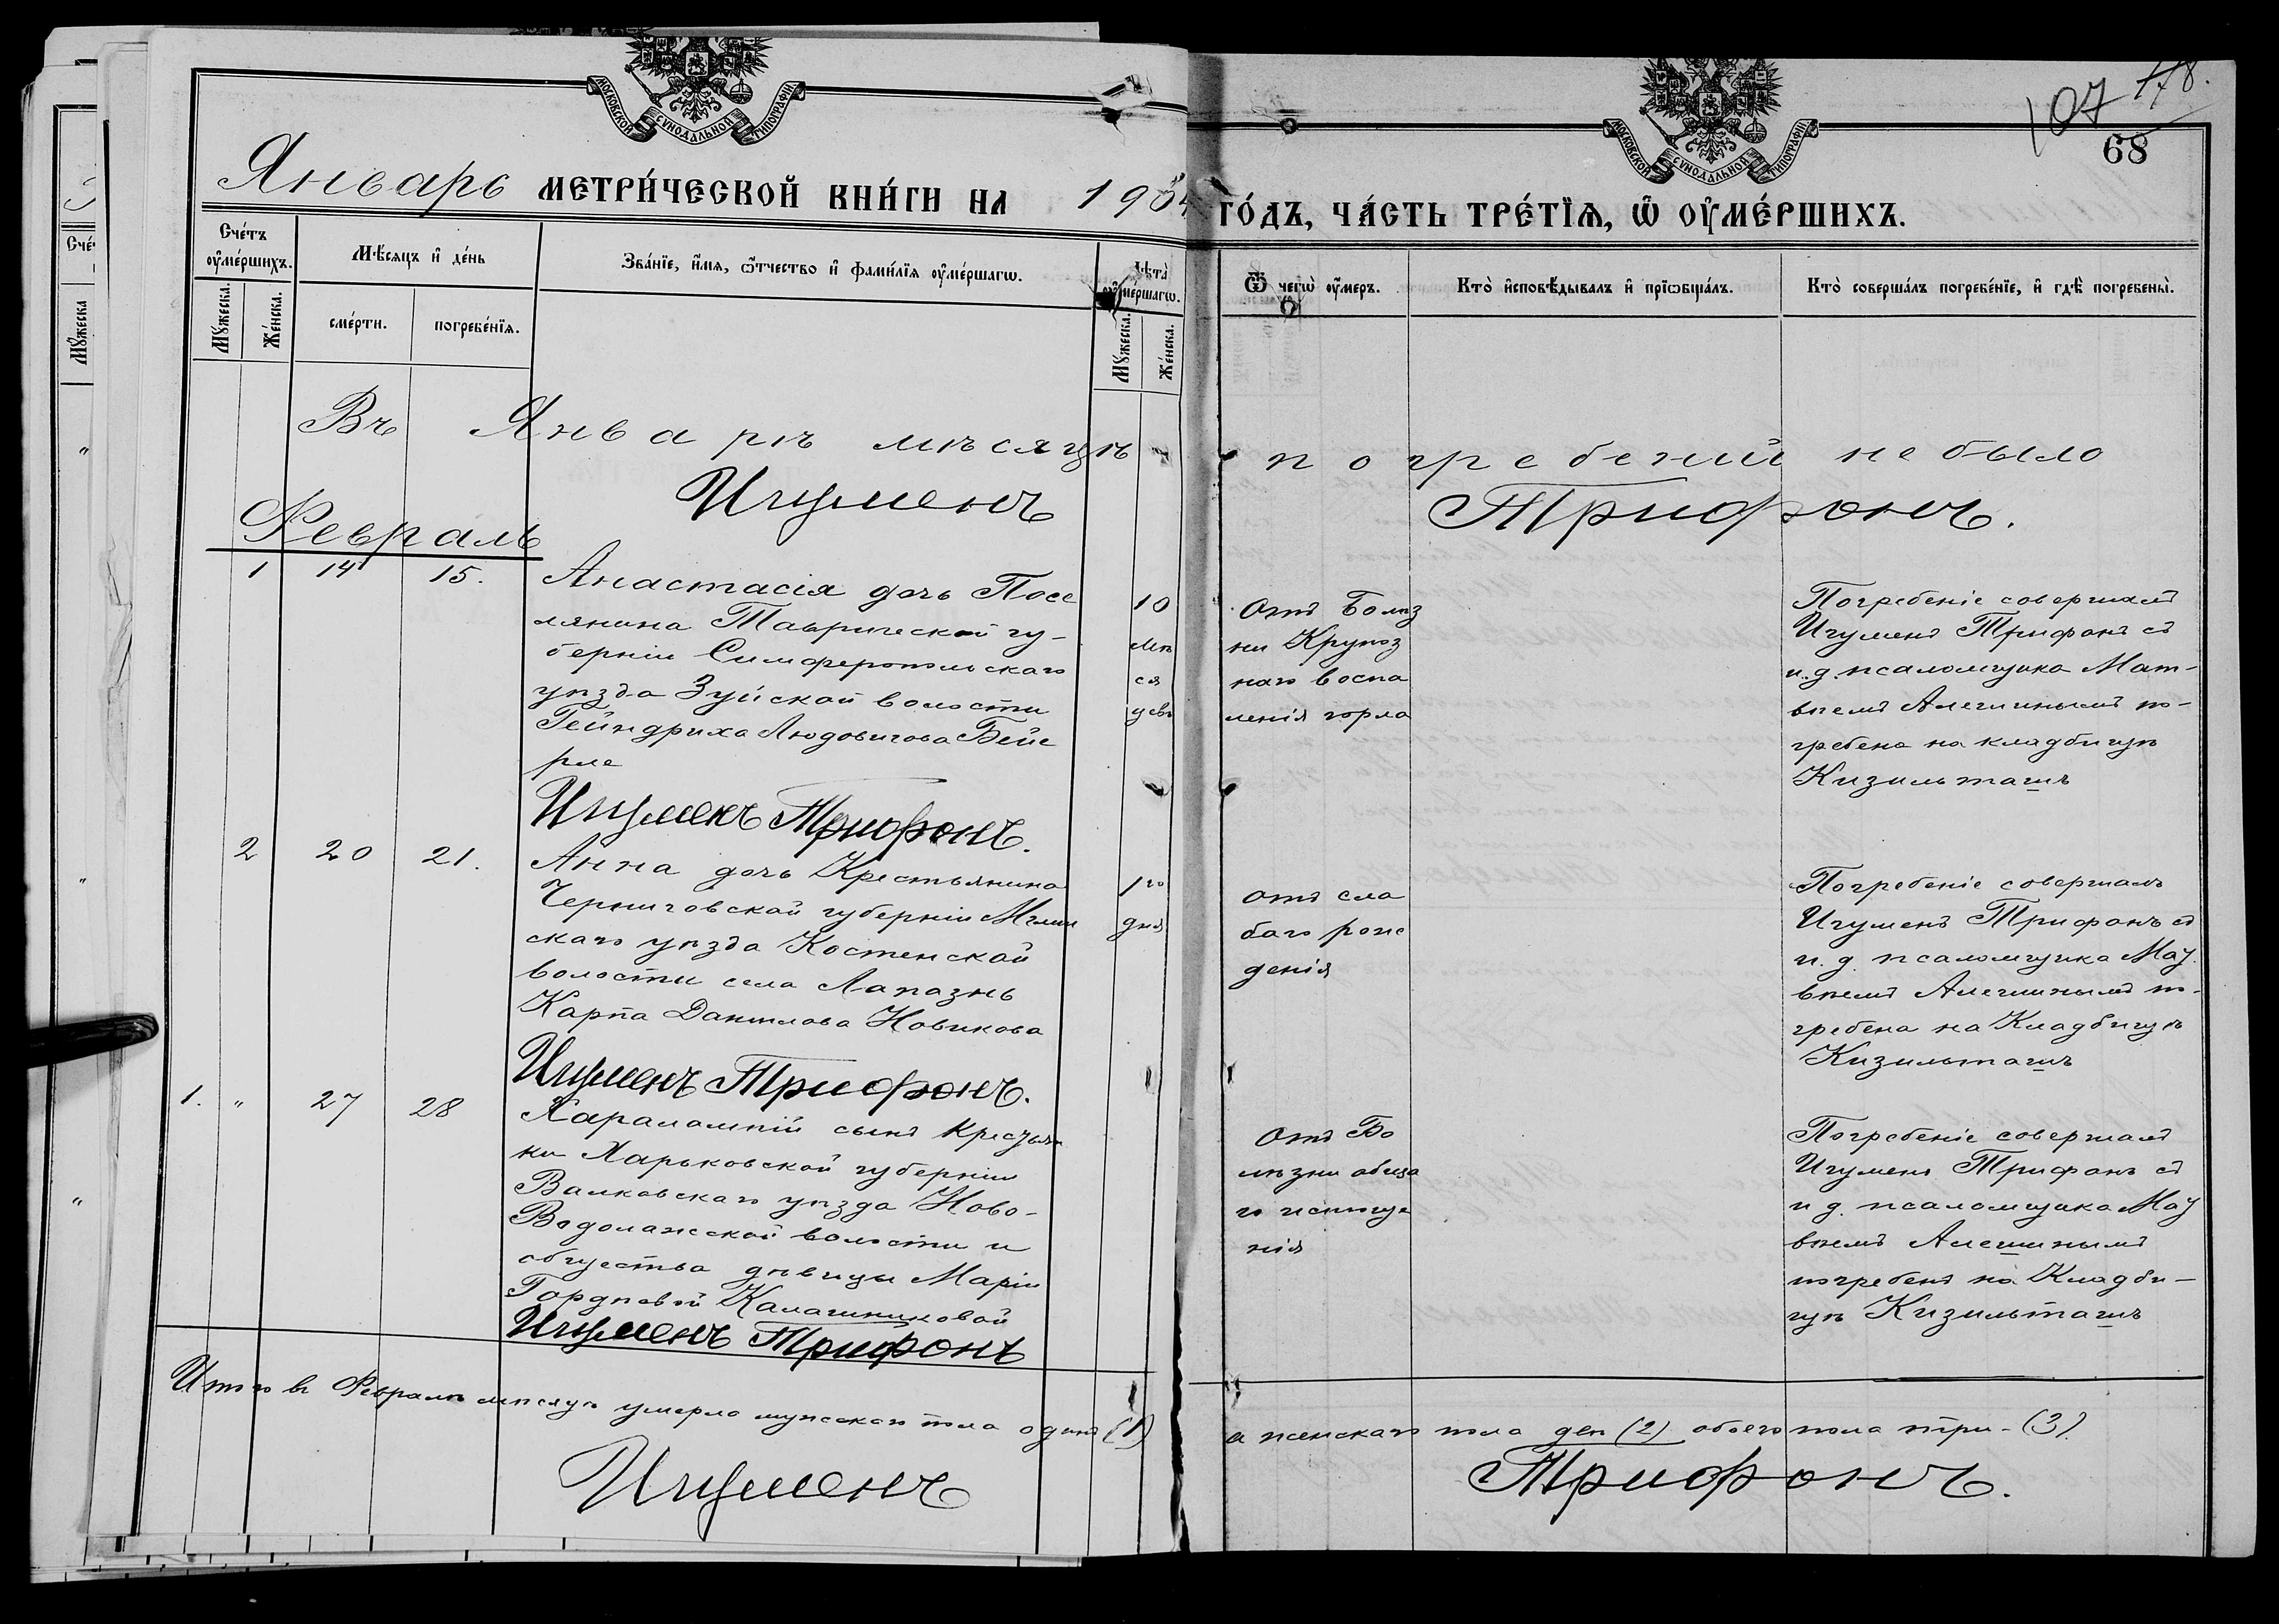 МОСКОВСКОЙ СѴНОДАЛЬНОЙ ТИПОГРАФІИ
МОСКОВСКОЙ СѴНОДАЛЬНОЙ ТИПОГРАФІИ
107 178.
68
Январь МЕТРИ́ЧЕСКОЙ КНИ́ГИ НА 1904 ГО́ДЪ, ЧА́СТЬ ТРЕ́ТЇѦ, Ѡ҆ ОУ҆МЕ́РШИХЪ.
Сче́тъ оу҆ме́ршихъ.
Мꙋ́жеска.
Же́нска.
Мѣ́сѧцъ и҆ де́нь
сме́рти.
погребе́нїѧ.
Зва́нїе, и҆́мѧ, ѻ҆́тчество и҆ фами́лїѧ оу҆ме́ршагѡ.
Лѣ́та оу҆ме́ршагѡ.
Мꙋ́жеска.
Же́нска.
Ѿ чегѡ̀ оу҆́меръ.
Кто̀ и҆сповѣ́дывалъ и҆ прїѡбща́лъ.
Кто̀ соверша́лъ погребе́нїе, и҆ гдѣ̀ погребены̀.
Въ Январѣ мѣсяцѣ погребеній не было
Игуменъ Трифонъ.
Февраль
1 14 15.
Анастасія дочь Посе
лянина Таврической гу-
берніи Симферопольскаго
уѣзда Зуйской волости
Гейндриха Людовигова Бейе
рле
Игуменъ Трифонъ.
10
мѣ
ся
цевъ
Отъ Болѣз
ни Крупоз
наго воспа
ленія горла
Погребеніе совершалъ
Игуменъ Трифонъ съ
и. д. псаломщика Мат-
вѣемъ Алешинымъ по-
гребена на кладбищѣ
Кизильташъ
2 20 21.
Анна дочь Крестьянина
Черниговской губерніи Мглин
скаго уѣзда Костенской
волости села Лапазнь
Карпа Данилова Новикова
Игуменъ Трифонъ.
1го
дня
отъ сла
баго рож
денія
Погребеніе совершалъ
Игуменъ Трифонъ съ
и. д. псаломщика Мат
вѣемъ Алешинымъ по-
гребена на Кладбищѣ
Кизильташъ
1. " 27 28
Харалампій сынъ Крестьян
ки Харьковской губерніи
Валковскаго уѣзда Ново-
Водолажской волости и
общества дѣвицы Маріи
Гордѣевой Калашниковой
Игуменъ Трифонъ
Отъ Бо
лѣзни общаго
го истоще
нія
Погребеніе совершалъ
Игуменъ Трифонъ съ
и д. псаломщика Мат
вѣемъ Алешинымъ
погребенъ на Кладби-
щѣ Кизильташъ
Итого въ Февралѣ мѣсяцѣ умерло мужского пола одинъ (1) а женскаго пола двѣ (2) обоего пола три - (3).
Игуменъ Трифонъ.